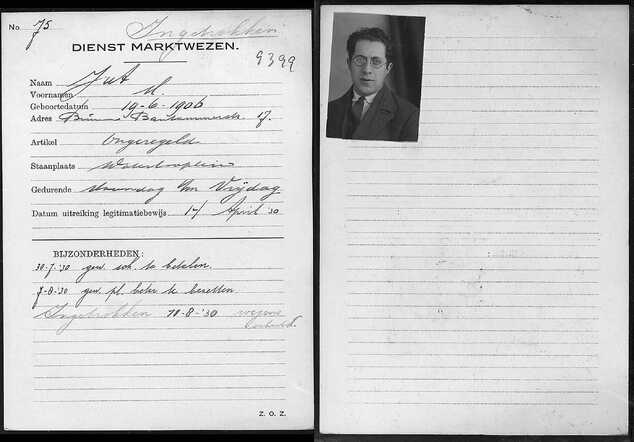 No. 75
Ingetrokken
DIENST MARKTWEZEN.
9399
Naam Jut
Voornamen M
Geboortedatum 19-6-1906
Adres Bankammerstr. 17.
Artikel Ongeregeld
Staanplaats Waterlooplein
Gedurende Maandag t/m Vrijdag
Datum uitreiking legitimatiebewijs 17 April '30
BIJZONDERHEDEN:
30-7-'30 gew. sch. te betalen.
7-8-'30 gew. pl. beter te bezetten.
Ingetrokken 11-8-'30 wegens
Z. O. Z.